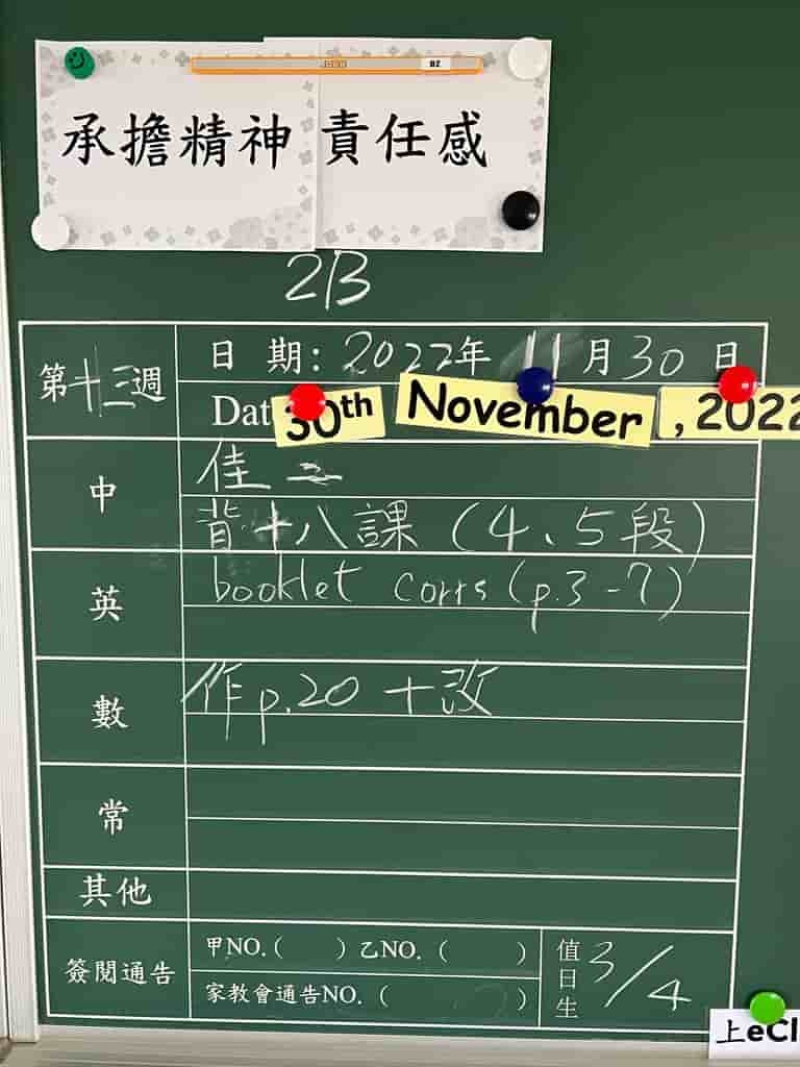 承擔精神 責任感
2B
第十三週
日期：2022年11月30日
Dat 30th November, 2022
中
佳二
背十八課（4、5段）
英
booklet corrs (p.3-7)
數
作p.20 +改
常
其他
簽閱通告
甲NO.（ ）乙NO.（ ）
家教會通告NO.（ ）
值日生 3/4
上eCl